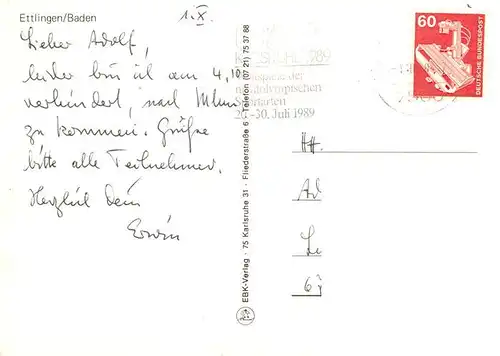 Ettlingen/Baden
1.X.
Lieber Adolf,
leider bin ich am 4.10
verhindert, nach
zu kommen. Grüße
bitte alle Teilnehmer.
Herzlich Dein
Erwin
EBK-Verlag · 75 Karlsruhe 31 · Fliederstraße 6 · Telefon (07 21) 75 37 88
1989
der
olympischen
20.-30. Juli 1989
60
DEUTSCHE BUNDESPOST
H.
Ad
Le